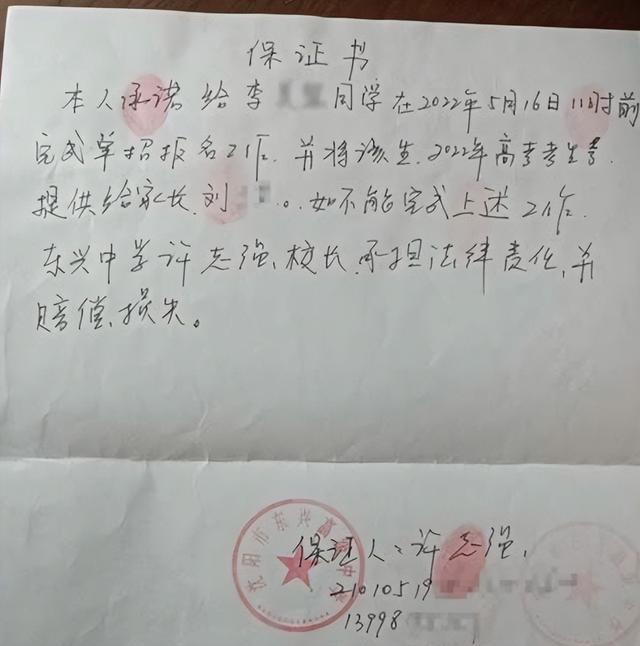 保证书
本人承诺给李 同学在2022年5月16日11时前
完成单招报名工作.并将该生.2022年高考考生号.
提供给家长.刘 。如不能完成上述工作.
东兴中学许志强.校长.承担法律责任.并
赔偿.损失。
市东兴高
保证人:许志强.
21010519
13998